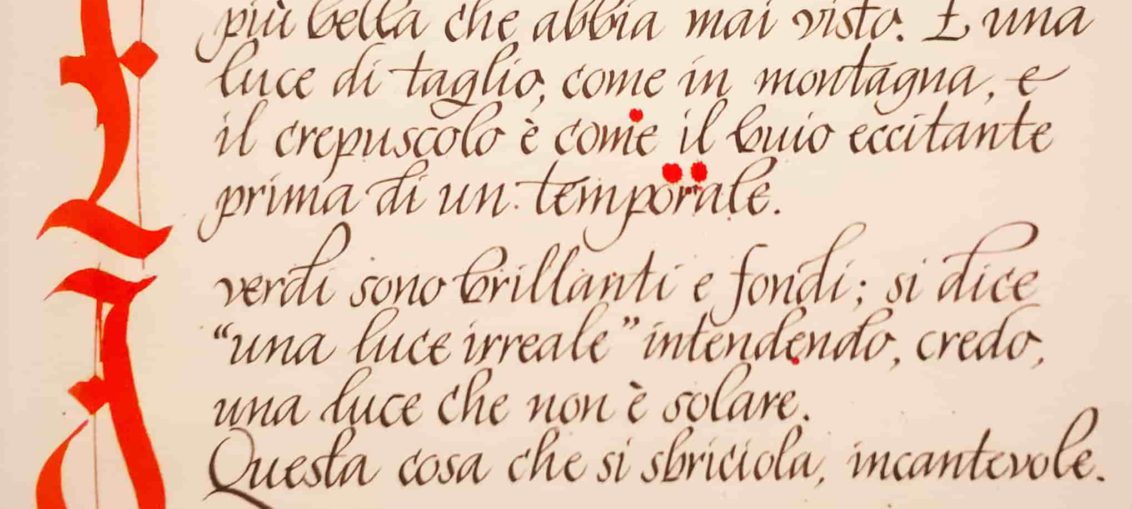 più bella che abbia mai visto. È una
luce di taglio, come in montagna, e
il crepuscolo è come il buio eccitante
prima di un temporale.
verdi sono brillanti e fondi; si dice
“una luce irreale” intendendo, credo,
una luce che non è solare.
Questa cosa che si sbriciola, incantevole.